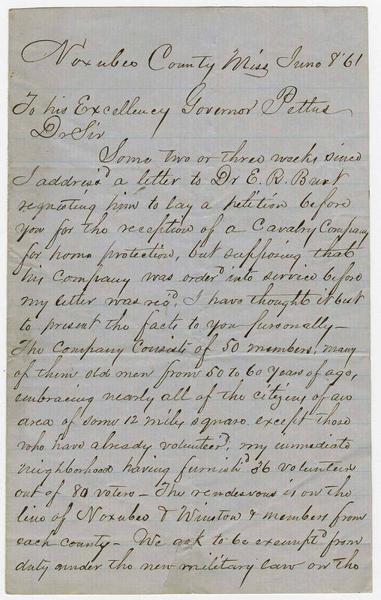 Noxubee County Miss June 8 '61
To his Excellency Governor Pettus
Dr Sir
Some two or three weeks since
I address'd a letter to Dr E. R. Burt
requisting him to lay a petition before
you for the reception of a Cavalry Company
for home protection, but supposing that
his Company was order'd into service before
my letter was rec'd, I have thought it but
to present the facts to you personally—
The Company consists of 50 members, many
of them old men from 50 to 60 years of age,
embracing nearly all of the citizens of an
area of some 12 miles square except those
who have already volunteer'd, my immediate
neighborhood having furnish'd 36 volunteers
out of 80 voters— The rendesvous is on the
line of Noxubee & Winston & members from
each county— We ask to be exempt'd from
duty under the new military law on the